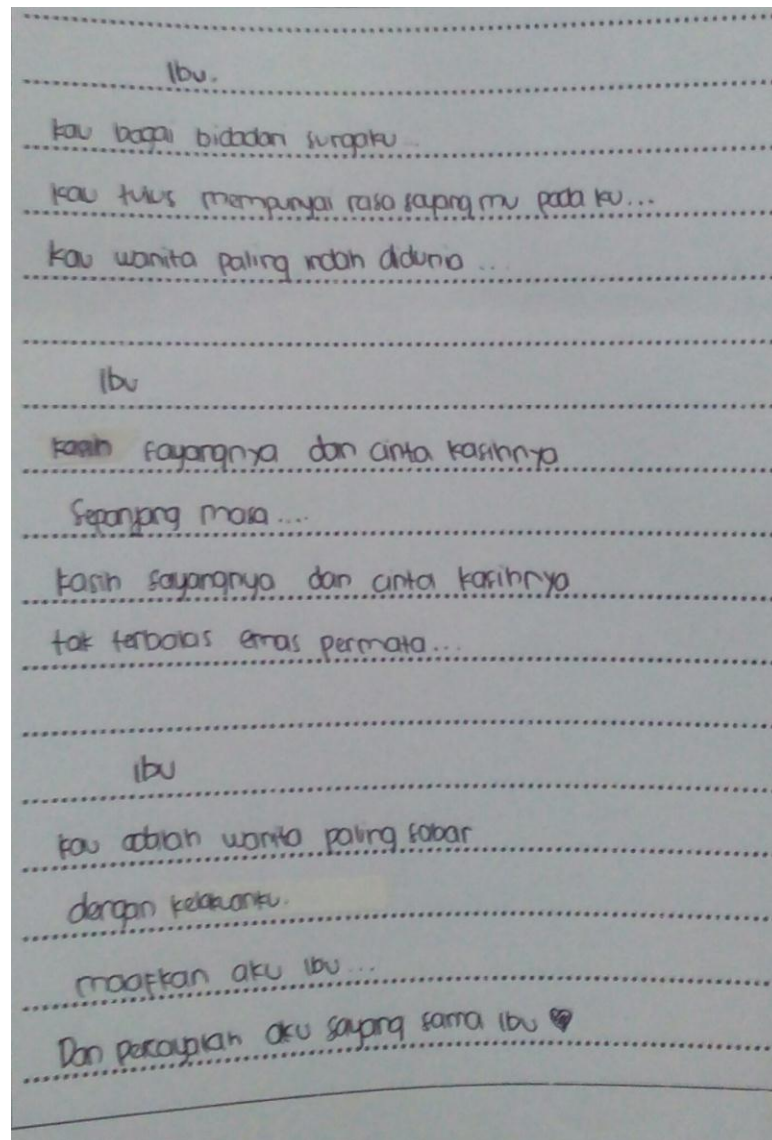 Ibu.
kau bagai bidadari surgaku...
kau tulus mempunyai rasa sayang mu pada ku...
kau wanita paling indah didunia...
Ibu
kasih sayangnya dan cinta kasihnya
Sepanjang masa....
kasih sayangnya dan cinta kasihnya
tak terbalas emas permata...
Ibu
kau adalah wanita paling sabar
dengan kelakuanku.
maafkan aku ibu...
Dan percayalah aku sayang sama ibu ♥